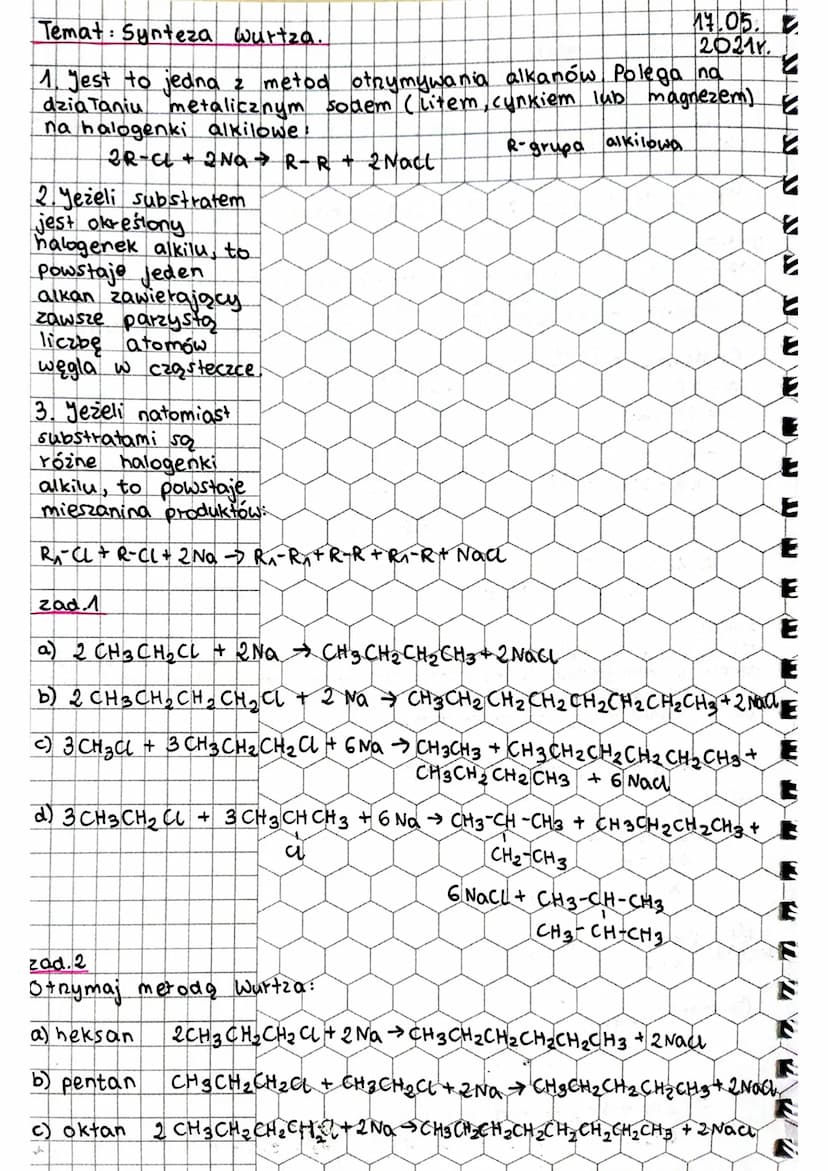 Temat: Synteza Wurtza.
17.05.
2021r.
1. Jest to jedna z metod otrzymywania alkanów. Polega na
działaniu metalicznym sodem (litem, cynkiem lub magnezem)
na halogenki alkilowe:
R-grupa alkilowa
2R-Cl + 2Na → R-R + 2NaCl
2. Jeżeli substratem
jest określony
halogenek alkilu, to
powstaje jeden
alkan zawierający
zawsze parzystą
liczbę atomów
węgla w cząsteczce.
3. Jeżeli natomiast
substratami są
różne halogenki
alkilu, to powstaje
mieszanina produktów:
R₁-Cl + R-Cl + 2Na → R₁-R₁ + R-R + R₁-R + NaCl
zad.1
a) 2 CH3CH2Cl + 2Na → CH3CH2CH2CH3 + 2NaCl
b) 2 CH3CH2CH2CH2Cl + 2 Na → CH3CH2CH2CH2CH2CH2CH2CH3 + 2NaCl
c) 3CH3Cl + 3 CH3CH2CH2Cl + 6Na → CH3CH3 + CH3CH2CH2CH2CH2CH3 +
CH3CH2CH2CH3 + 6 NaCl
d) 3CH3CH2Cl + 3CH3CHCH3 + 6 Na → CH3-CH-CH3 + CH3CH2CH2CH3 +
Cl CH2-CH3
6 NaCl + CH3-CH-CH3
CH3-CH-CH3
zad.2
Otrzymaj metodą Wurtza:
a) heksan 2CH3CH2CH2Cl + 2Na → CH3CH2CH2CH2CH2CH3 + 2NaCl
b) pentan CH3CH2CH2Cl + CH3CH2Cl + 2Na → CH3CH2CH2CH2CH3 + 2NaCl
c) oktan 2 CH3CH2CH2CH2Cl + 2Na → CH3CH2CH2CH2CH2CH2CH2CH3 + 2NaCl